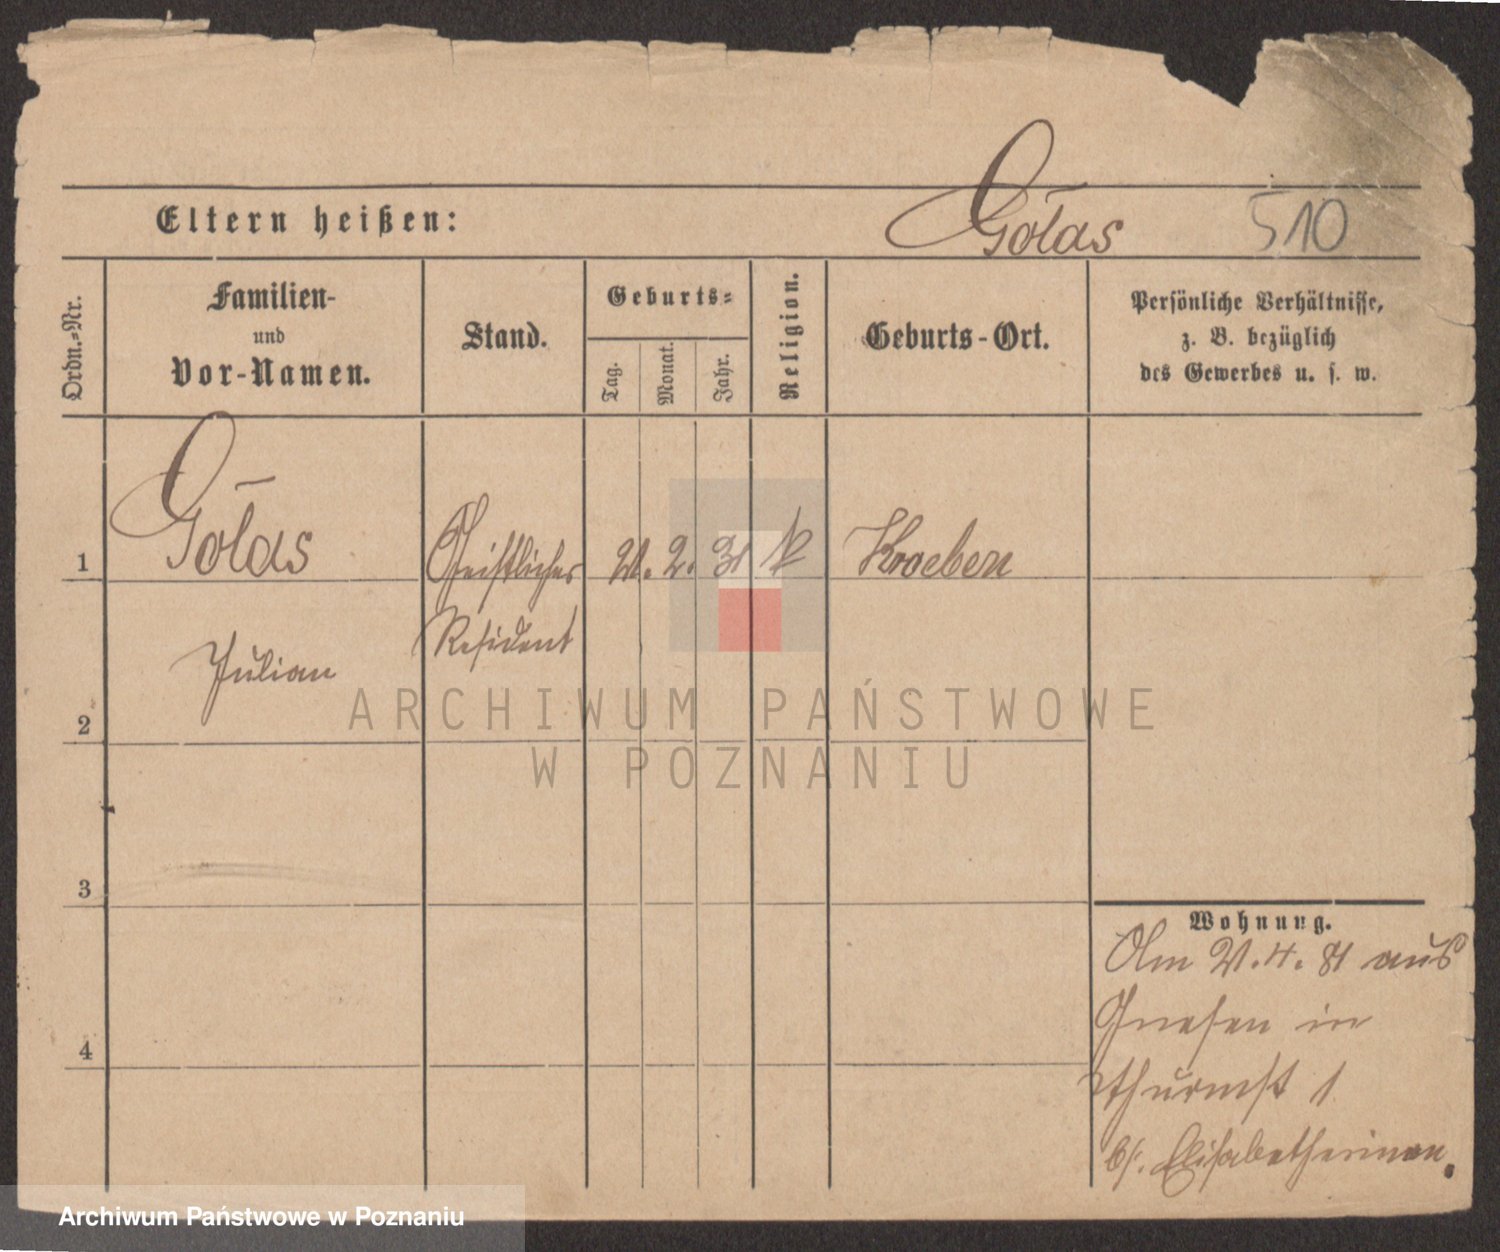 Eltern heißen: Gołas 510
Ordn.-Nr. Familien- und Vor-Namen. Stand. Geburts- Tag. Monat. Jahr. Religion. Geburts-Ort. Persönliche Verhältnisse, z. B. bezüglich des Gewerbes u. s. w.
1 Gołas Geistlicher 2. Kroeben
Resident
Julian
2
3
4
Wohnung.
Am 4. 81 aus
Gnesen in
Thurmst 1
b/. Elisabetherinnen.
ARCHIWUM PAŃSTWOWE
W POZNANIU
Archiwum Państwowe w Poznaniu